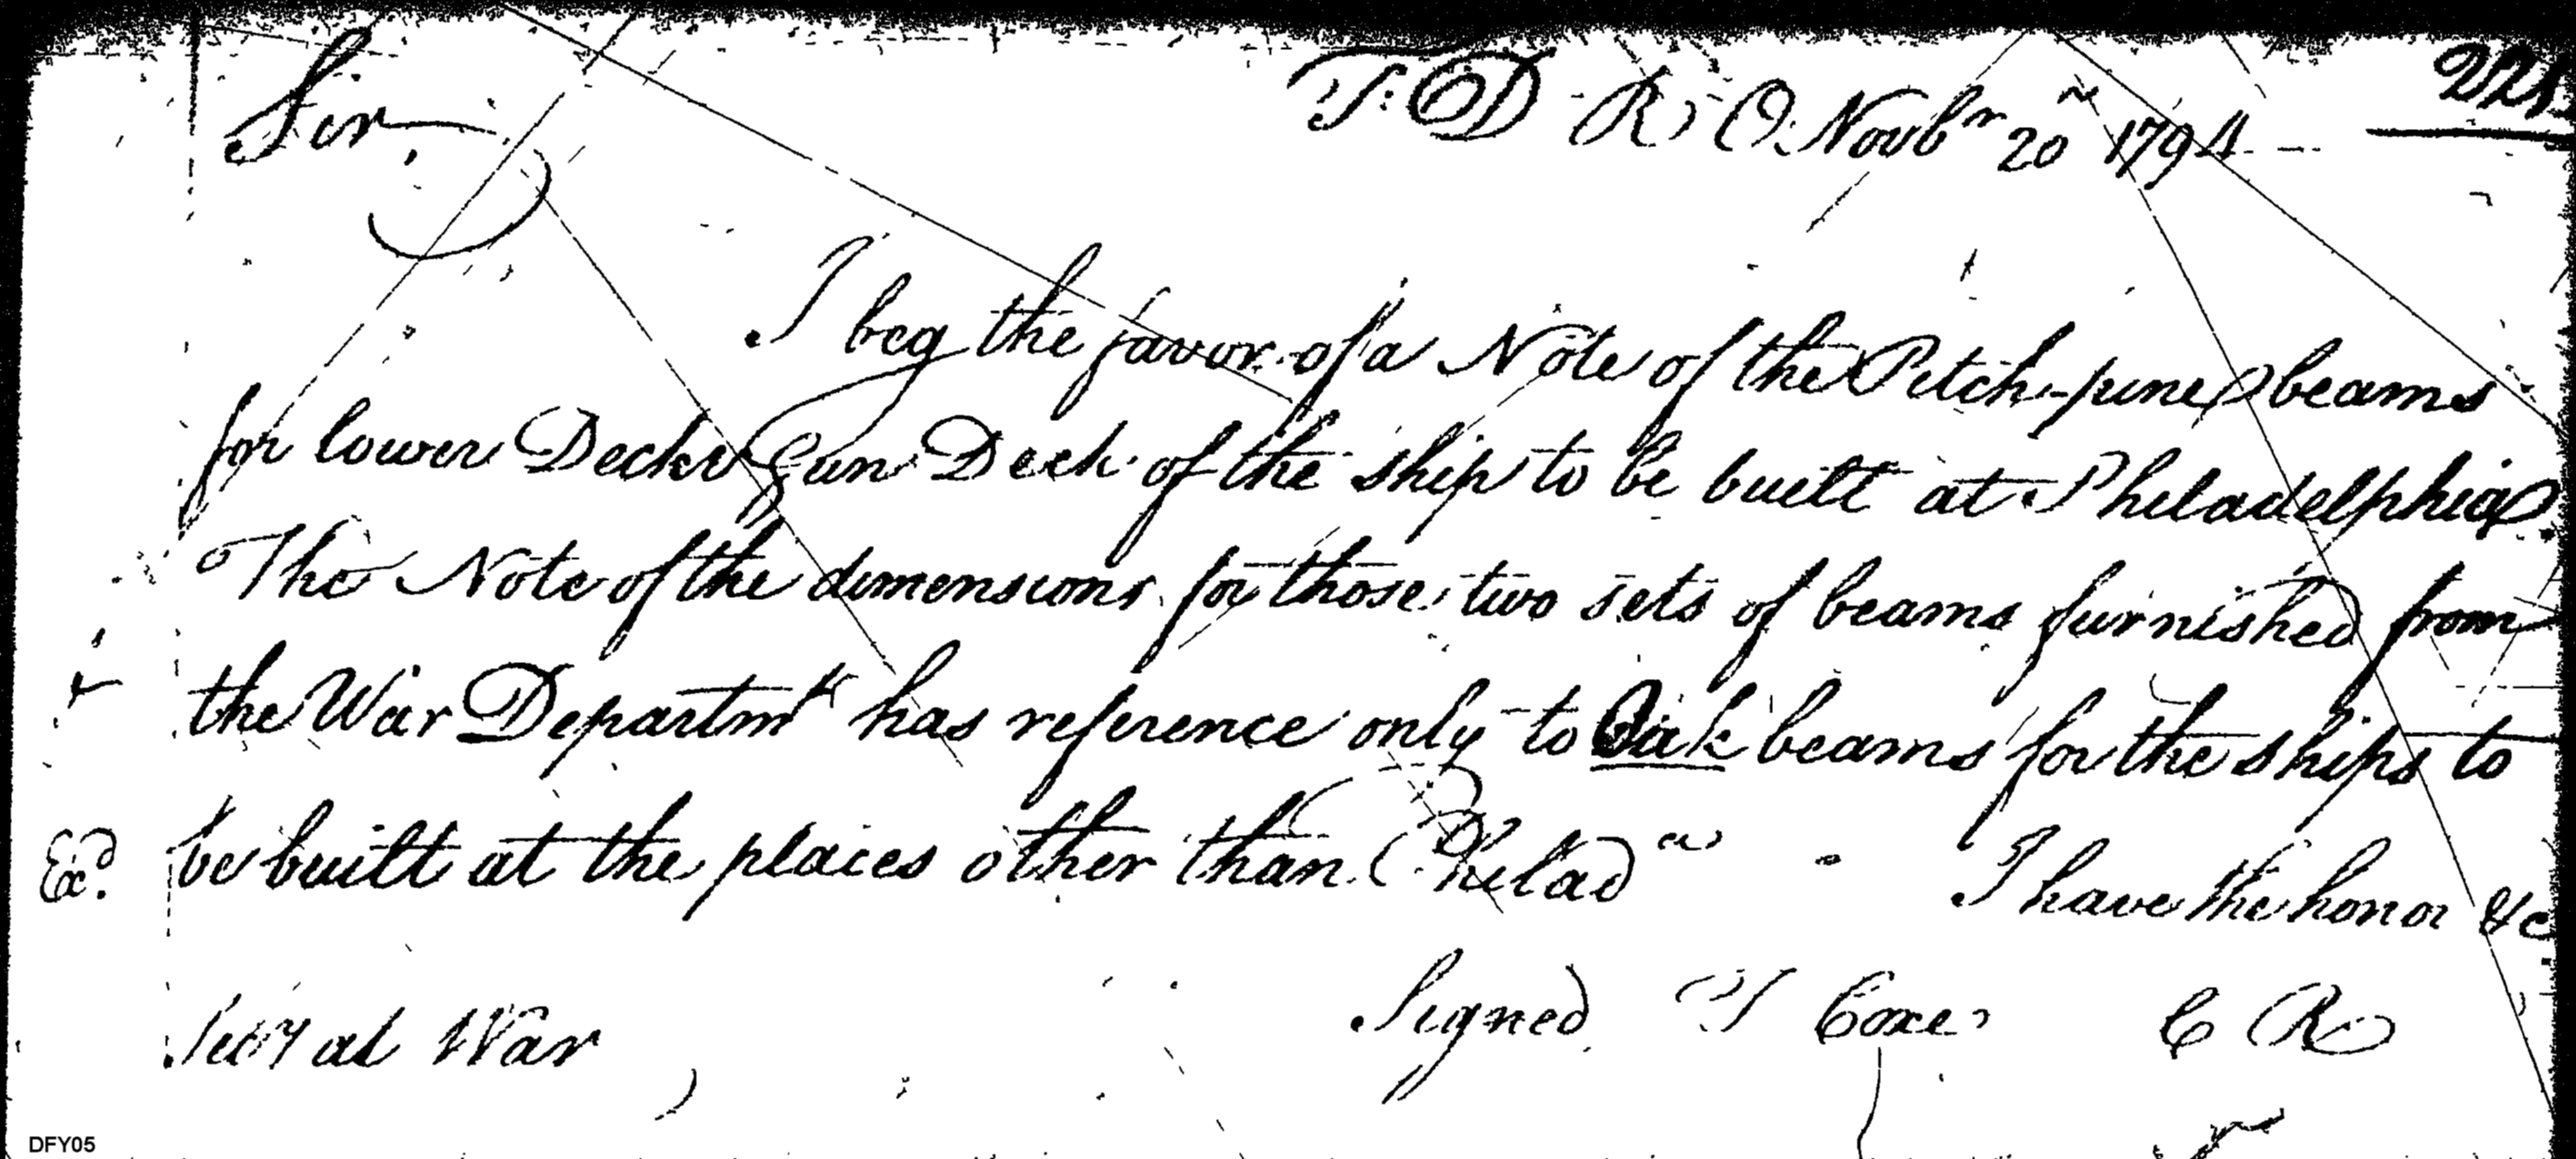 Sir, T: D R: O. Novbr 20th 1794
I beg the favor of a Note of the Pitch-pine beams
for lower Deck & Gun Deck of the ship to be built at Philadelphia.
The Note of the dimensions for those two sets of beams furnished from
the War Departmt has reference only to Oak beams for the ships to
Exd. be built at the places other than Philada - I have the honor &c
Signed T Coxe C R
Secy at War
DFY05